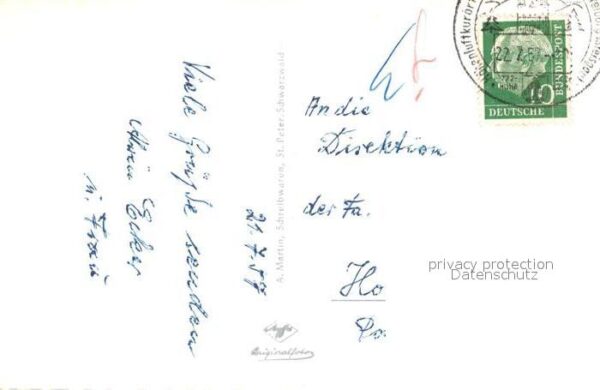 Viele Grüße senden
Alwin Ecker
u. Frau
21.7.57
A. Martin, Schreibwaren, St. Peter, Schwarzwald
Agfa
Originalfoto
An die
Direktion
der Fa.
Ho
Po
privacy protection
Datenschutz
Höhenluftkurort
22.7.57
DEUTSCHE
BUNDESPOST
10